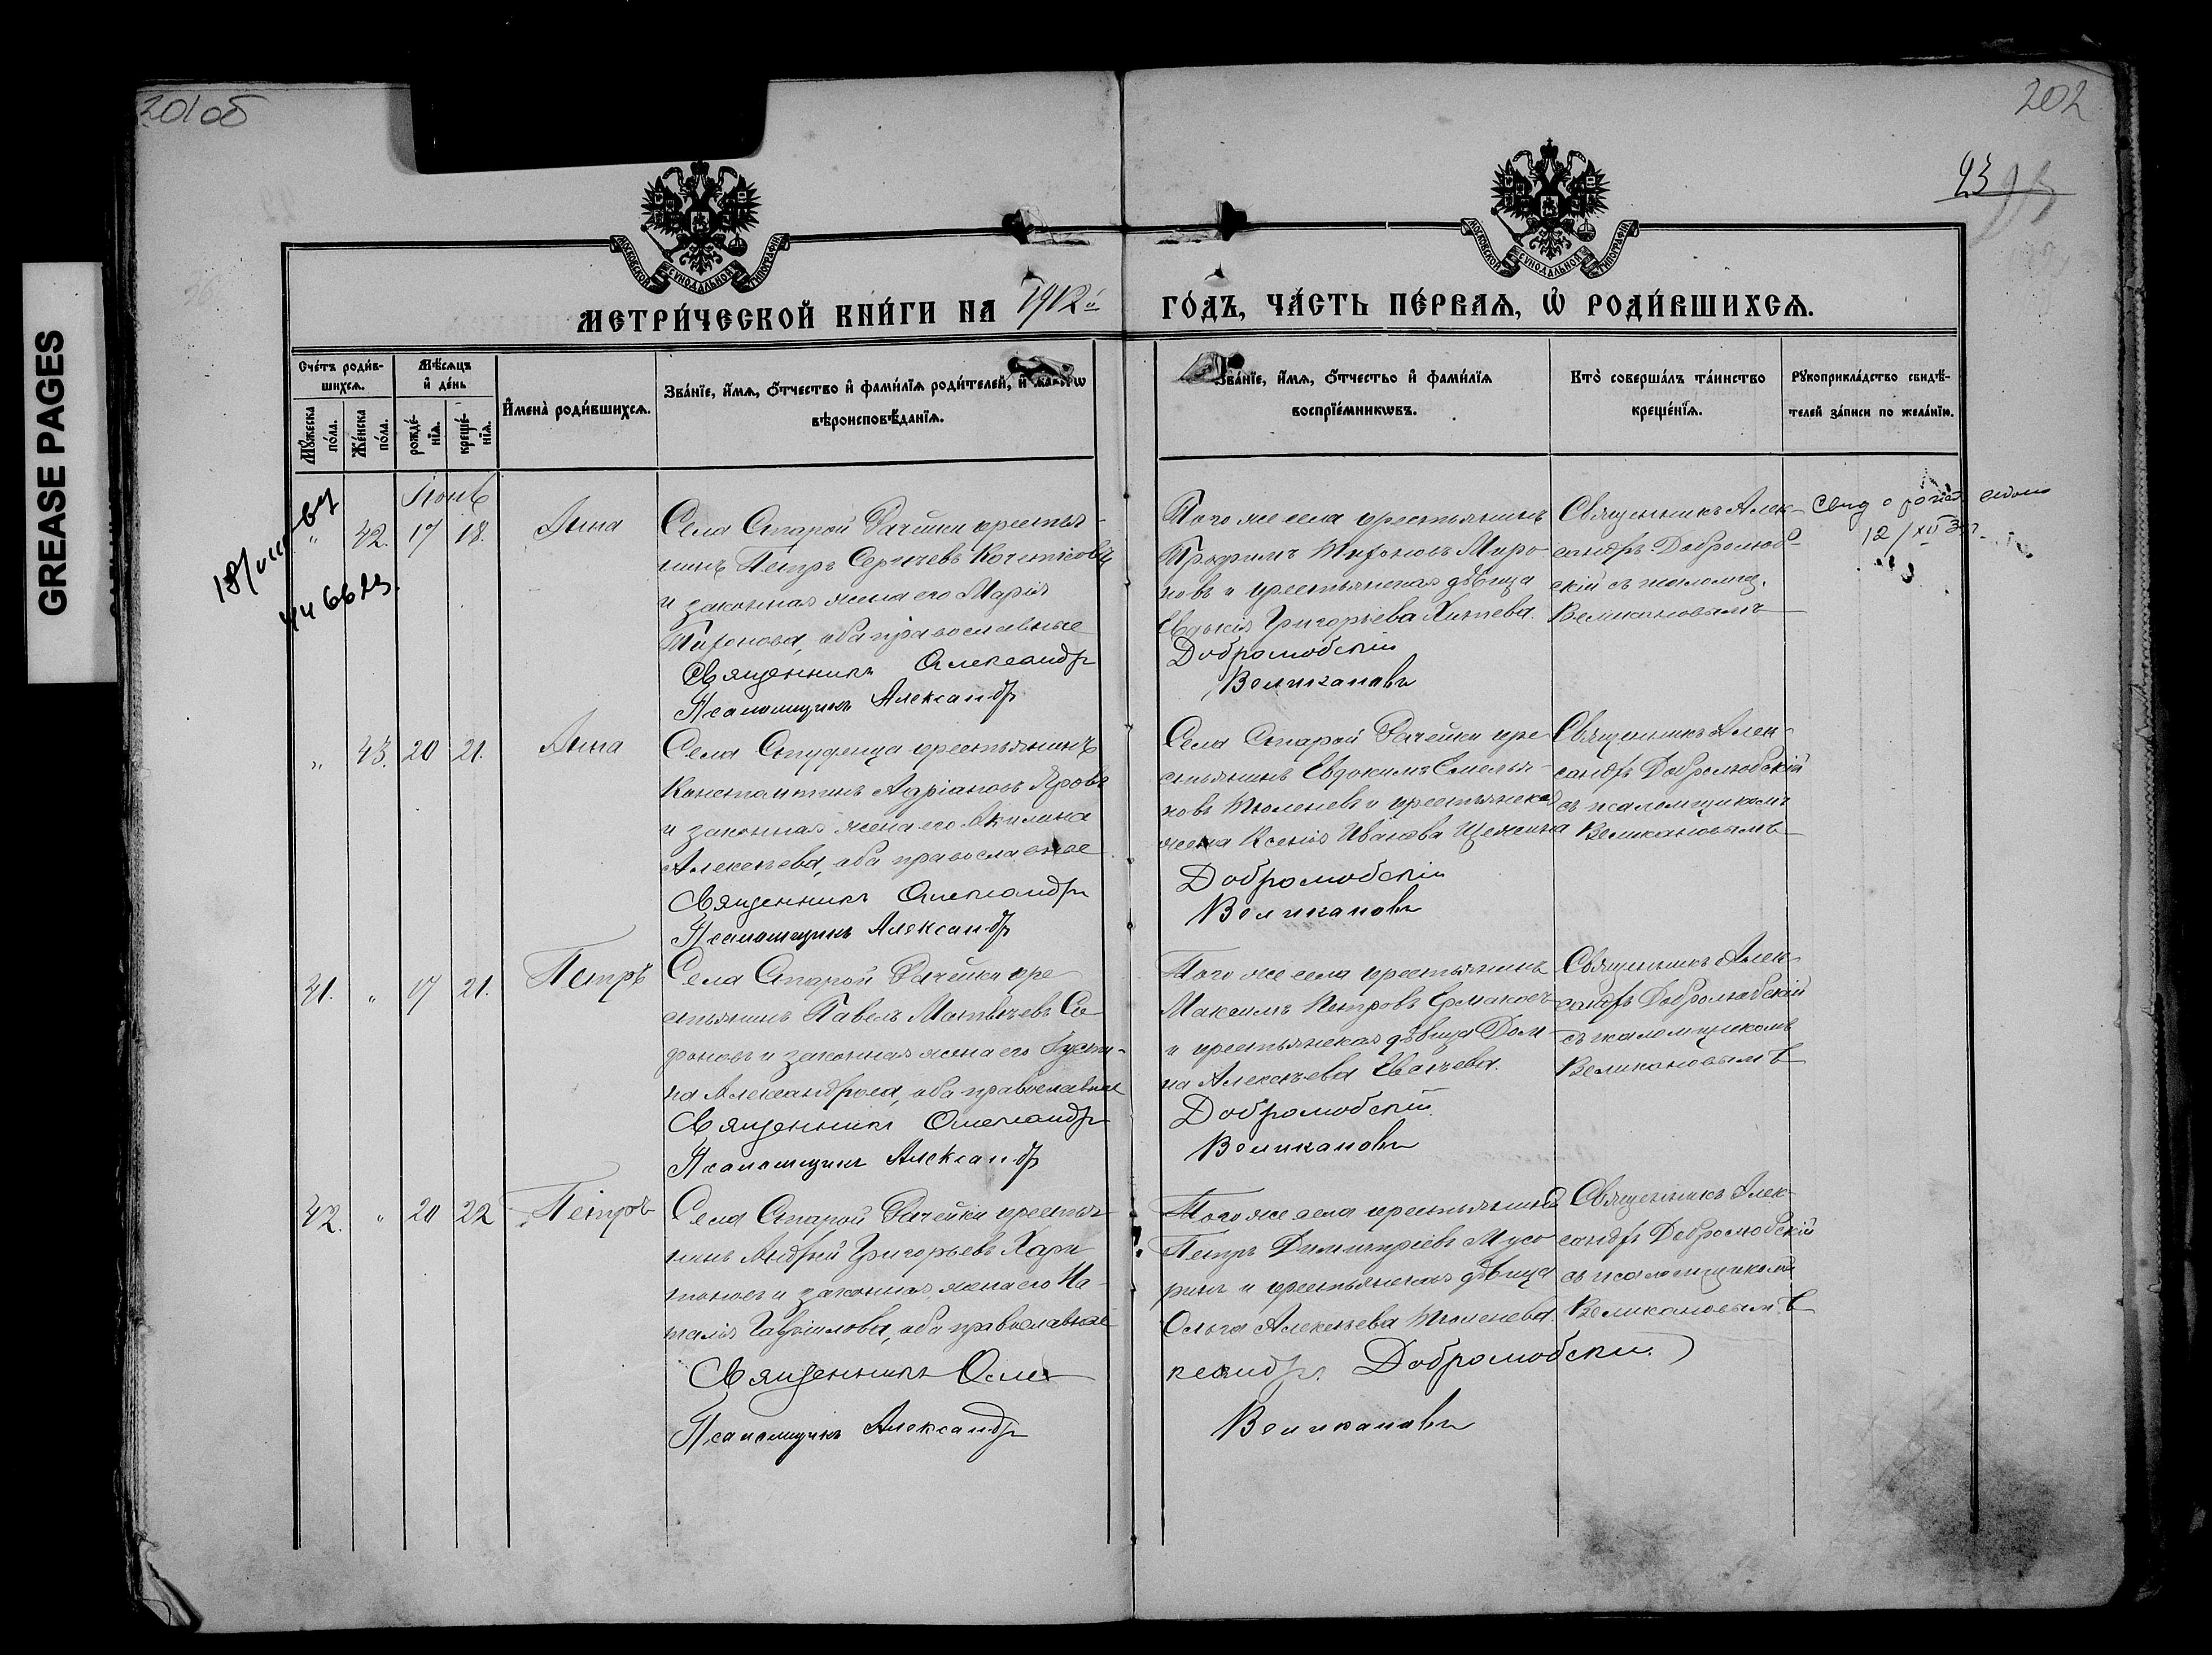 201об
202
GREASE PAGES
МОСКОВСКОЙ СУНОДАЛЬНОЙ ТИПОГРАФІИ
МОСКОВСКОЙ СУНОДАЛЬНОЙ ТИПОГРАФІИ
МЕТРИ́ЧЕСКОЙ КНИ́ГИ НА 1912й ГО́ДЪ, ЧА́СТЬ ПЕ́РВАѦ, Ѡ҆ РОДИ́ВШИХСѦ.
Сче́тъ роди́в-
шихсѧ.
Мѣ́сѧцъ
и҆ де́нь
Мꙋ́жеска по́ла.
Же́нска по́ла.
рожде́-
нїѧ.
креще́-
нїѧ.
И҆мена̀ роди́вшихсѧ.
Зва́нїе, и҆́мѧ, ѻ҆́тчество и҆ фами́лїѧ роди́телей, и҆
вѣроисповѣ́данїѧ.
Зва́нїе, и҆́мѧ, ѻ҆́тчество и҆ фами́лїѧ
воспрїе́мникѡвъ.
Кто̀ соверша́лъ та́инство
креще́нїѧ.
Рꙋкоприкла́дство свидѣ́-
телей за́писи по жела́нїю.
Іюнь
„ 42. 17 18. Анна
Села Старой Рачейки крестья-
нинъ Петръ Сергѣевъ
и законная жена его Марія
Тихонова, оба православные
Священникъ Александръ
Псаломщикъ Александръ
Того же села крестьянинъ
Трофимъ Тихоновъ Миро-
новъ и крестьянская дѣвица
Евдокія Григорьева
Добролюбскій
Великановъ
Священникъ Алек-
сандръ Добролюб-
скій съ псаломщ.
Великановымъ
12/XII
„ 43. 20 21. Анна
Села Студенца крестьянинъ
Константинъ Адріановъ Яровъ
и законная жена его Акилина
Алексѣева, оба православные
Священникъ Александръ
Псаломщикъ Александръ
Села Старой Рачейки кре-
стьянинъ Евдокимъ Емелья-
новъ Тюленевъ и крестьянская
жена Ксенія Иванова
Добролюбскій
Великановъ
Священникъ Алек-
сандръ Добролюбскій
съ псаломщикомъ
Великановымъ
41. „ 17 21. Петръ
Села Старой Рачейки кре-
стьянинъ Павелъ Матвѣевъ Са-
фоновъ и законная жена его Густи-
на Александрова, оба православные
Священникъ Александръ
Псаломщикъ Александръ
Того же села крестьянинъ
Максимъ Петровъ Ермаковъ
и крестьянская дѣвица Дом-
на Алексѣева
Добролюбскій
Великановъ
Священникъ Алек-
сандръ Добролюбскій
съ псаломщикомъ
Великановымъ
42. „ 20 22 Петръ
Села Старой Рачейки крестья-
нинъ Андрей Григорьевъ Хари-
тоновъ и законная жена его На-
талія Гавріилова, оба православные
Священникъ Але-
Псаломщикъ Александръ
Того же села крестьянинъ
Петръ Димитріевъ Мусо-
ринъ и крестьянская дѣвица
Ольга Алексѣева Тюленева.
ксандръ Добролюбскій
Великановъ
Священникъ Алек-
сандръ Добролюбскій
съ псаломщикомъ
Великановымъ